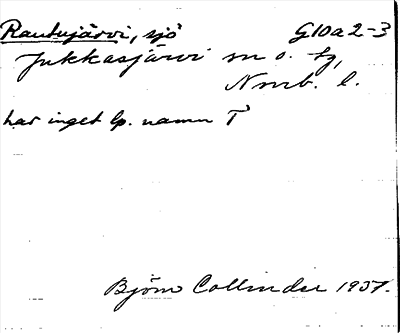 Rautujärvi, sjö G10a2-3
Jukkasjärvi sn o. tg,
Nmb. l.
har inget lp. namn T
Björn Collinder 1937.